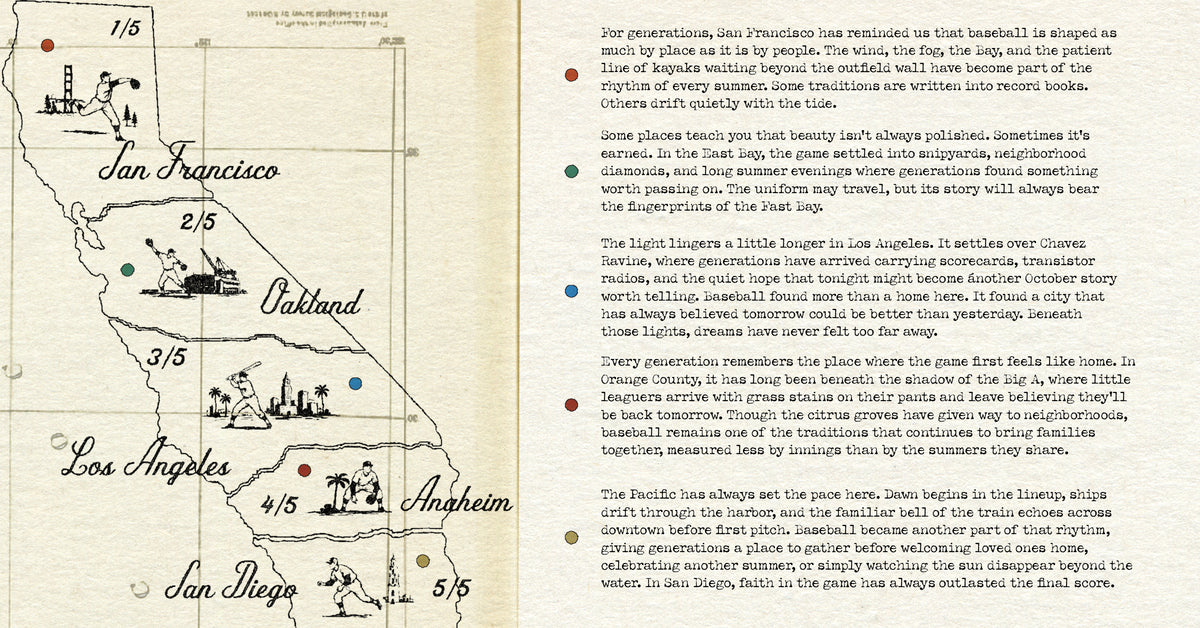 1/5
San Francisco
2/5
Oakland
3/5
Los Angeles
4/5
Anaheim
San Diego
5/5
For generations, San Francisco has reminded us that baseball is shaped as
much by place as it is by people. The wind, the fog, the Bay, and the patient
line of kayaks waiting beyond the outfield wall have become part of the
rhythm of every summer. Some traditions are written into record books.
Others drift quietly with the tide.
Some places teach you that beauty isn't always polished. Sometimes it's
earned. In the East Bay, the game settled into snipyards, neighborhood
diamonds, and long summer evenings where generations found something
worth passing on. The uniform may travel, but its story will always bear
the fingerprints of the East Bay.
The light lingers a little longer in Los Angeles. It settles over Chavez
Ravine, where generations have arrived carrying scorecards, transistor
radios, and the quiet hope that tonight might become another October story
worth telling. Baseball found more than a home here. It found a city that
has always believed tomorrow could be better than yesterday. Beneath
those lights, dreams have never felt too far away.
Every generation remembers the place where the game first feels like home. In
Orange County, it has long been beneath the shadow of the Big A, where little
leaguers arrive with grass stains on their pants and leave believing they'll
be back tomorrow. Though the citrus groves have given way to neighborhoods,
baseball remains one of the traditions that continues to bring families
together, measured less by innings than by the summers they share.
The Pacific has always set the pace here. Dawn begins in the lineup, ships
drift through the harbor, and the familiar bell of the train echoes across
downtown before first pitch. Baseball became another part of that rhythm,
giving generations a place to gather before welcoming loved ones home,
celebrating another summer, or simply watching the sun disappear beyond the
water. In San Diego, faith in the game has always outlasted the final score.